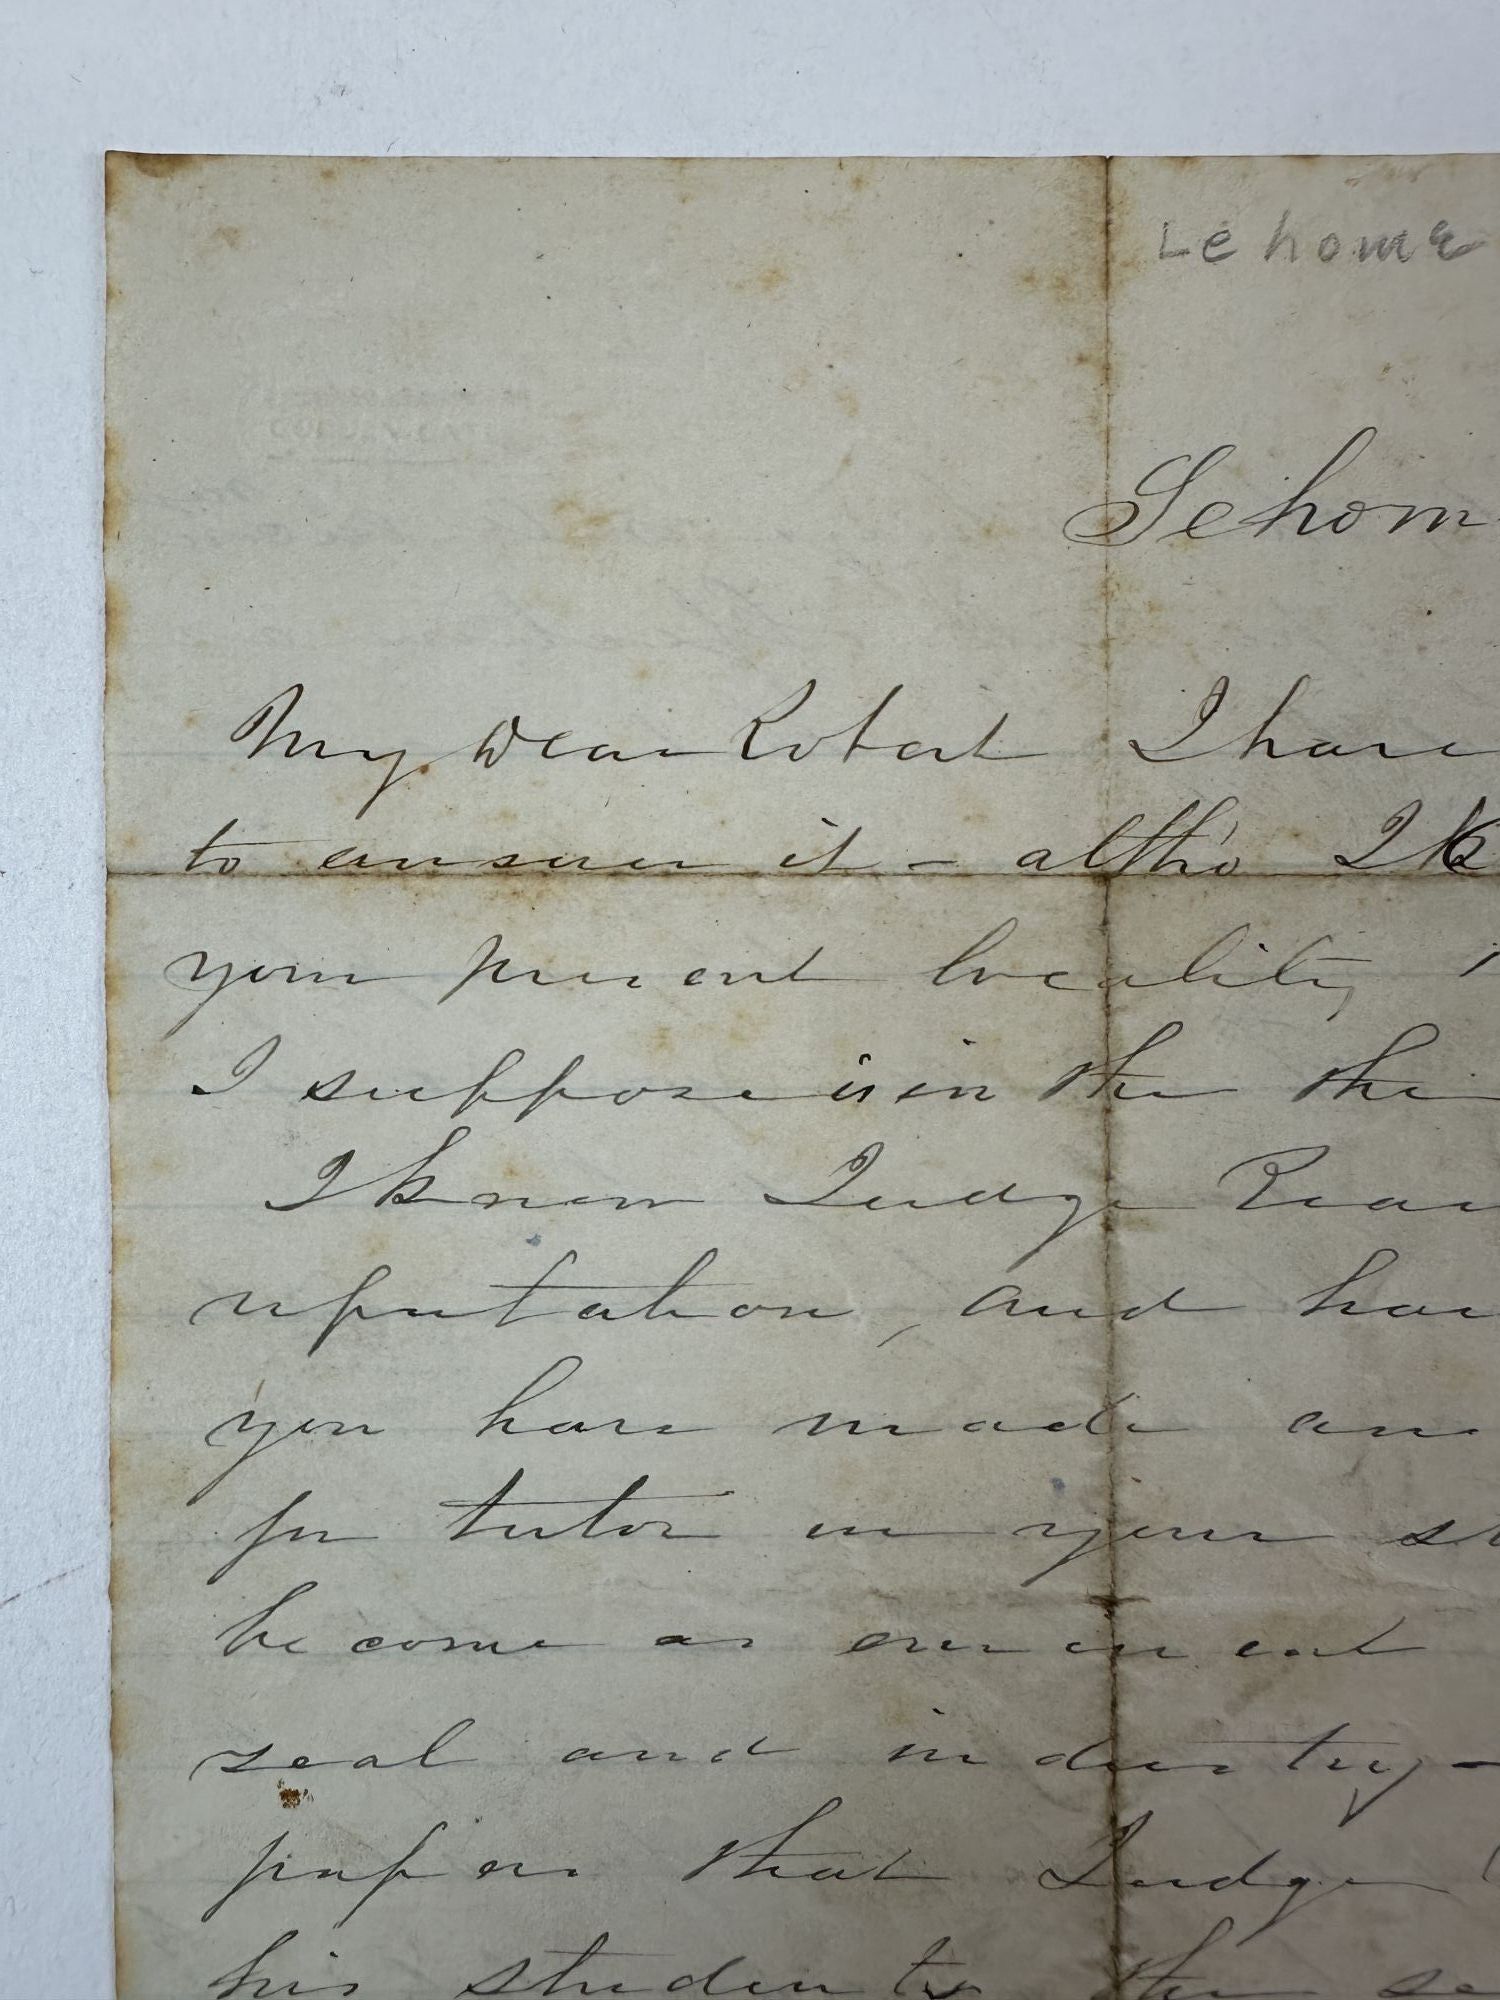 Lehome
Sehom
My Dear Robert I have
to answer it - altho' I k
your present locality
I suppose is in the the
I know Judge
reputation, and hav
you have made an
for tutor in your st
become as eminent
zeal and industry -
papers that Judge
his students the se